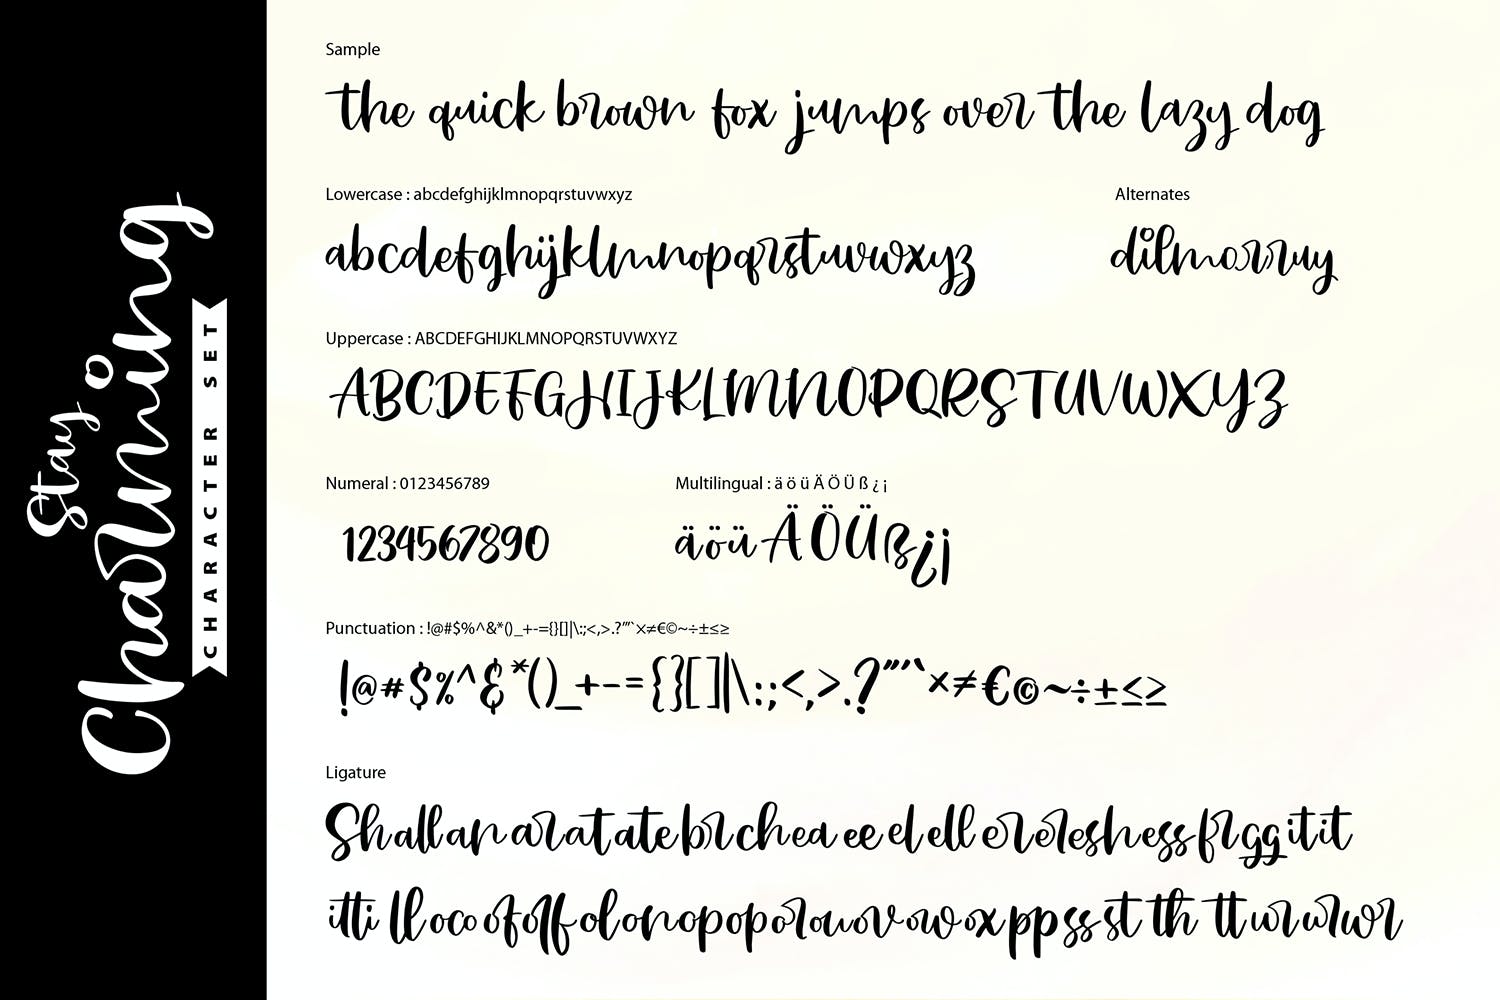 Stay
Charming
CHARACTER SET
Sample
the quick brown fox jumps over the lazy dog
Lowercase : abcdefghijklmnopqrstuvwxyz
abcdefghijklmnopqrstuvwxyz
Alternates
dilmorruy
Uppercase : ABCDEFGHIJKLMNOPQRSTUVWXYZ
ABCDEFGHIJKLMNOPQRSTUVWXYZ
Numeral : 0123456789
1234567890
Multilingual : ä ö ü Ä Ö Ü ß ¿ ¡
äöüÄÖÜß¿¡
Punctuation : !@#$%^&*()_+-={}[]|\:;<,>.?"'`×≠€©~÷±≤≥
!@#$%^&*()_+-={}[]|\:;<,>.?"'`×≠€©~÷±≤≥
Ligature
Sh all an ar at ate br ch ea ee el ell er er es h ess fr gg it it
itti ll oco of off ol on op op or ou ov ow ox pp ss st th tt ur wr wr